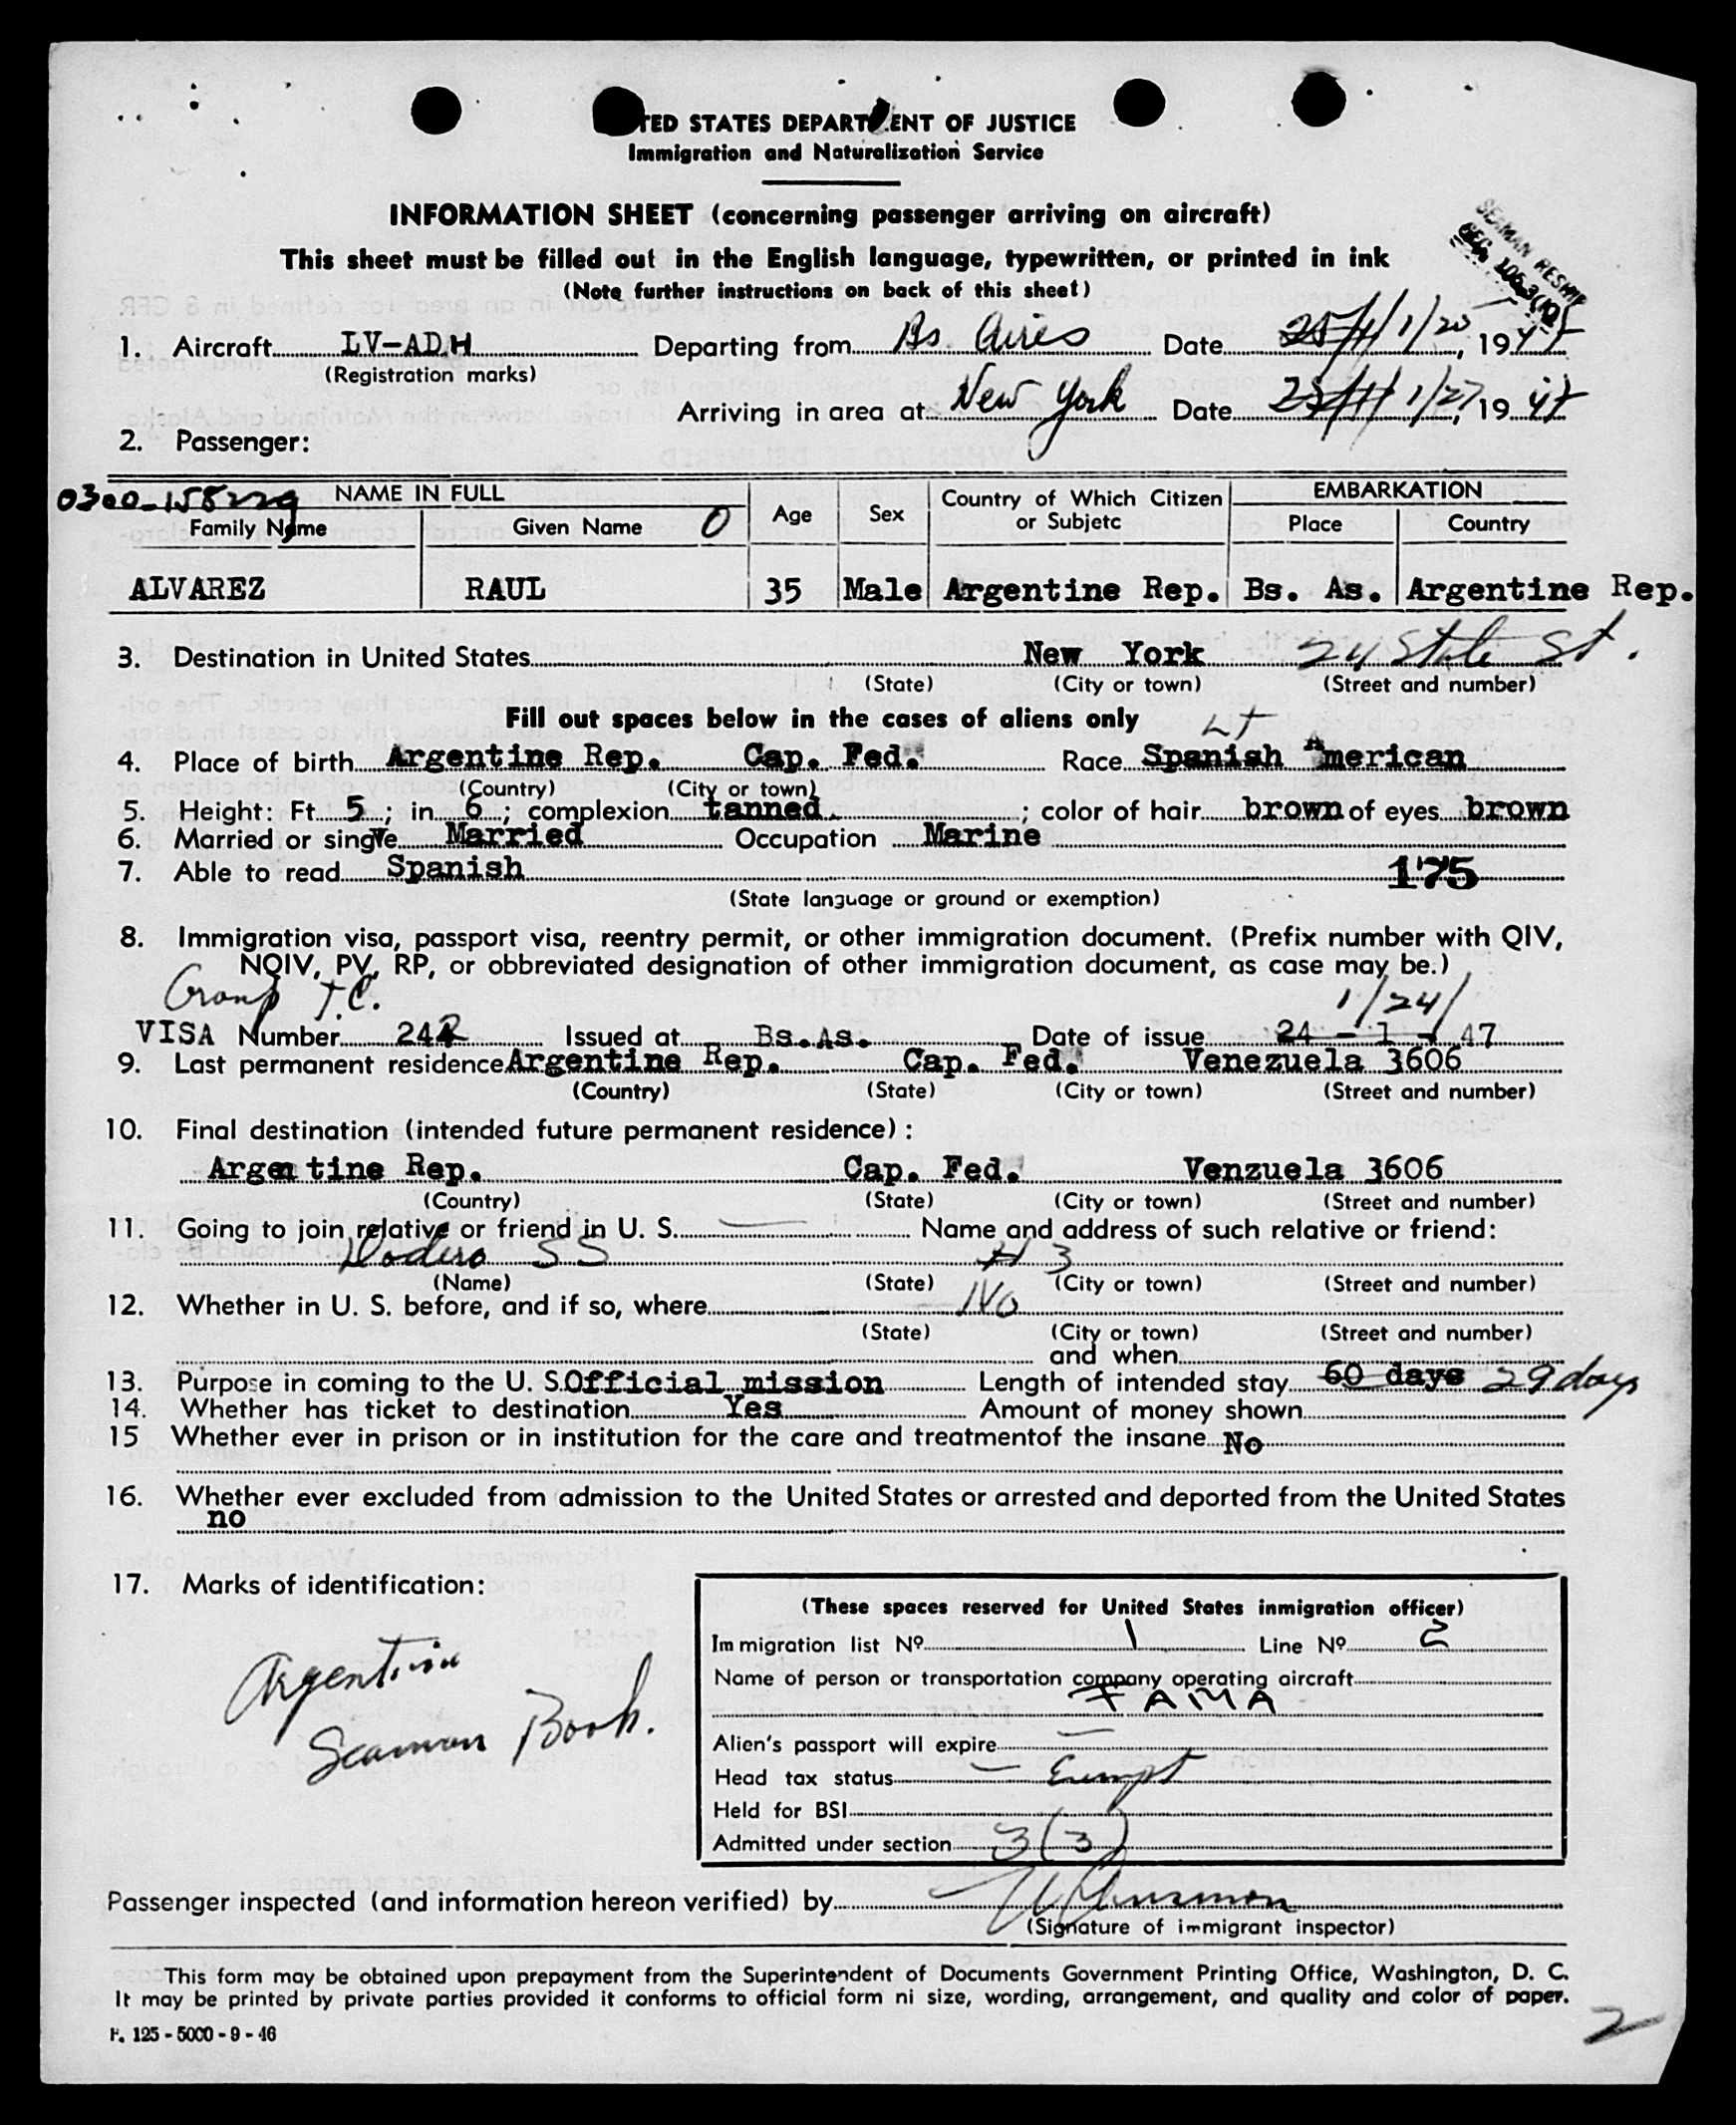 TED STATES DEPART ENT OF JUSTICE
Immigration and Naturalization Service
INFORMATION SHEET (concerning passenger arriving on aircraft)
This sheet must be filled out in the English language, typewritten, or printed in ink
(Note further instructions on back of this sheet)
SEAMAN RESHIP
1. Aircraft LV-ADH Departing from Bs Aires Date 1/25, 1947
(Registration marks)
Arriving in area at New York Date 1/27, 1947
2. Passenger:
NAME IN FULL EMBARKATION
Family Name Given Name O Age Sex Country of Which Citizen or Subjetc Place Country
ALVAREZ RAUL 35 Male Argentine Rep. Bs. As. Argentine Rep.
3. Destination in United States New York 24 State St.
(State) (City or town) (Street and number)
Fill out spaces below in the cases of aliens only
4. Place of birth Argentine Rep. Cap. Fed. Race Spanish American
(Country) (City or town)
5. Height: Ft. 5 ; in. 6 ; complexion tanned ; color of hair brown of eyes brown
6. Married or single Married Occupation Marine
7. Able to read Spanish 175
(State language or ground or exemption)
8. Immigration visa, passport visa, reentry permit, or other immigration document. (Prefix number with QIV,
NQIV, PV, RP, or obbreviated designation of other immigration document, as case may be.)
Group T.C. 1/24/
VISA Number 242 Issued at Bs.As. Date of issue 24 - 1 - 47
9. Last permanent residence Argentine Rep. Cap. Fed. Venezuela 3606
(Country) (State) (City or town) (Street and number)
10. Final destination (intended future permanent residence) :
Argentine Rep. Cap. Fed. Venzuela 3606
(Country) (State) (City or town) (Street and number)
11. Going to join relative or friend in U. S. — Name and address of such relative or friend:
Dodero SS # 3
(Name) (State) (City or town) (Street and number)
12. Whether in U. S. before, and if so, where No
(State) (City or town) (Street and number)
and when
13. Purpose in coming to the U. S. Official mission Length of intended stay 60 days 29 days
14. Whether has ticket to destination Yes Amount of money shown
15 Whether ever in prison or in institution for the care and treatmentof the insane No
16. Whether ever excluded from admission to the United States or arrested and deported from the United States
no
17. Marks of identification:
Argentine
Seaman Book.
(These spaces reserved for United States inmigration officer)
Immigration list Nº 1 Line Nº 2
Name of person or transportation company operating aircraft
FAMA
Alien's passport will expire —
Head tax status — Exempt
Held for BSI
Admitted under section 3(3)
Passenger inspected (and information hereon verified) by
(Signature of immigrant inspector)
This form may be obtained upon prepayment from the Superintendent of Documents Government Printing Office, Washington, D. C.
It may be printed by private parties provided it conforms to official form ni size, wording, arrangement, and quality and color of paper.
F. 125 - 5000 - 9 - 46
2